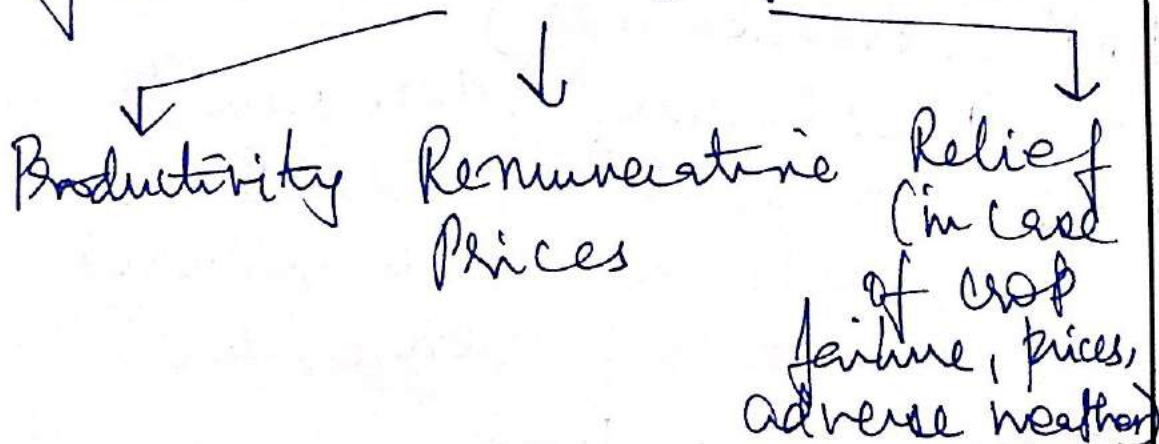 Productivity
Remunerative
Prices
Relief
(in case
of crop
failure, prices,
adverse weather)